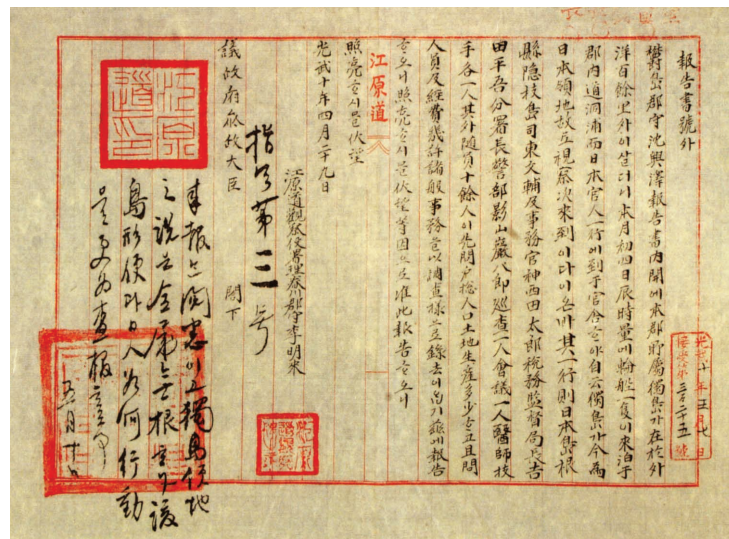 報告書號外
鬱島郡守沈興澤報告書內開에本郡所屬獨島가在於外
洋百餘里外이살더니本月初四日辰時量에輪船一隻이來泊于
郡內道洞浦而日本官人一行이到于官舍ᄒᆞ야自云獨島가今爲
日本領地故로視察次來到이다이온바其一行則日本島根
縣隱岐島司東文輔及事務官神西田太郎稅務監督局長吉
田平吾分署長警部影山巖八郎巡査一人會議一人醫師技
手各一人其外隨員十餘人이先問戶摠人口土地生産多少ᄒᆞ고且問
人員及經費幾許諸般事務를以調査樣으로錄去이ᄋᆞᆸ기玆에報告
ᄒᆞ오니照亮ᄒᆞ시믈伏望等因으로准此報告ᄒᆞ오니
照亮ᄒᆞ시믈伏望
光武十年四月二十九日
江原道觀察使署理春川郡守李明來
議政府參政大臣 閣下
指令第三号
來報는閱悉이고獨島領地
之說은全屬無根ᄒᆞ나該
島形便과日人如何行動
을更爲査報ᄒᆞᆯ事
五月十日
光武十年五月七日
接受第三百二十五號
江原道
江原道印